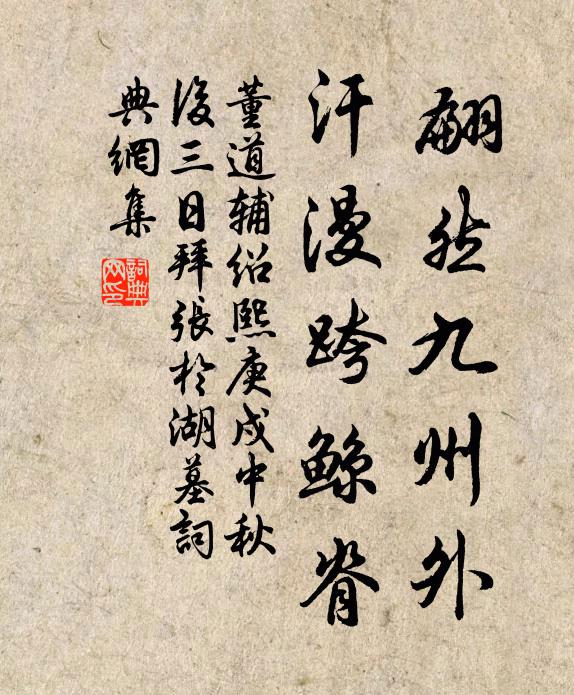 翩然九州外
汗漫跨鲸脊
董道辅绍熙庚戌中秋
後三日拜张於湖墓詞
典網集
詞典
网印